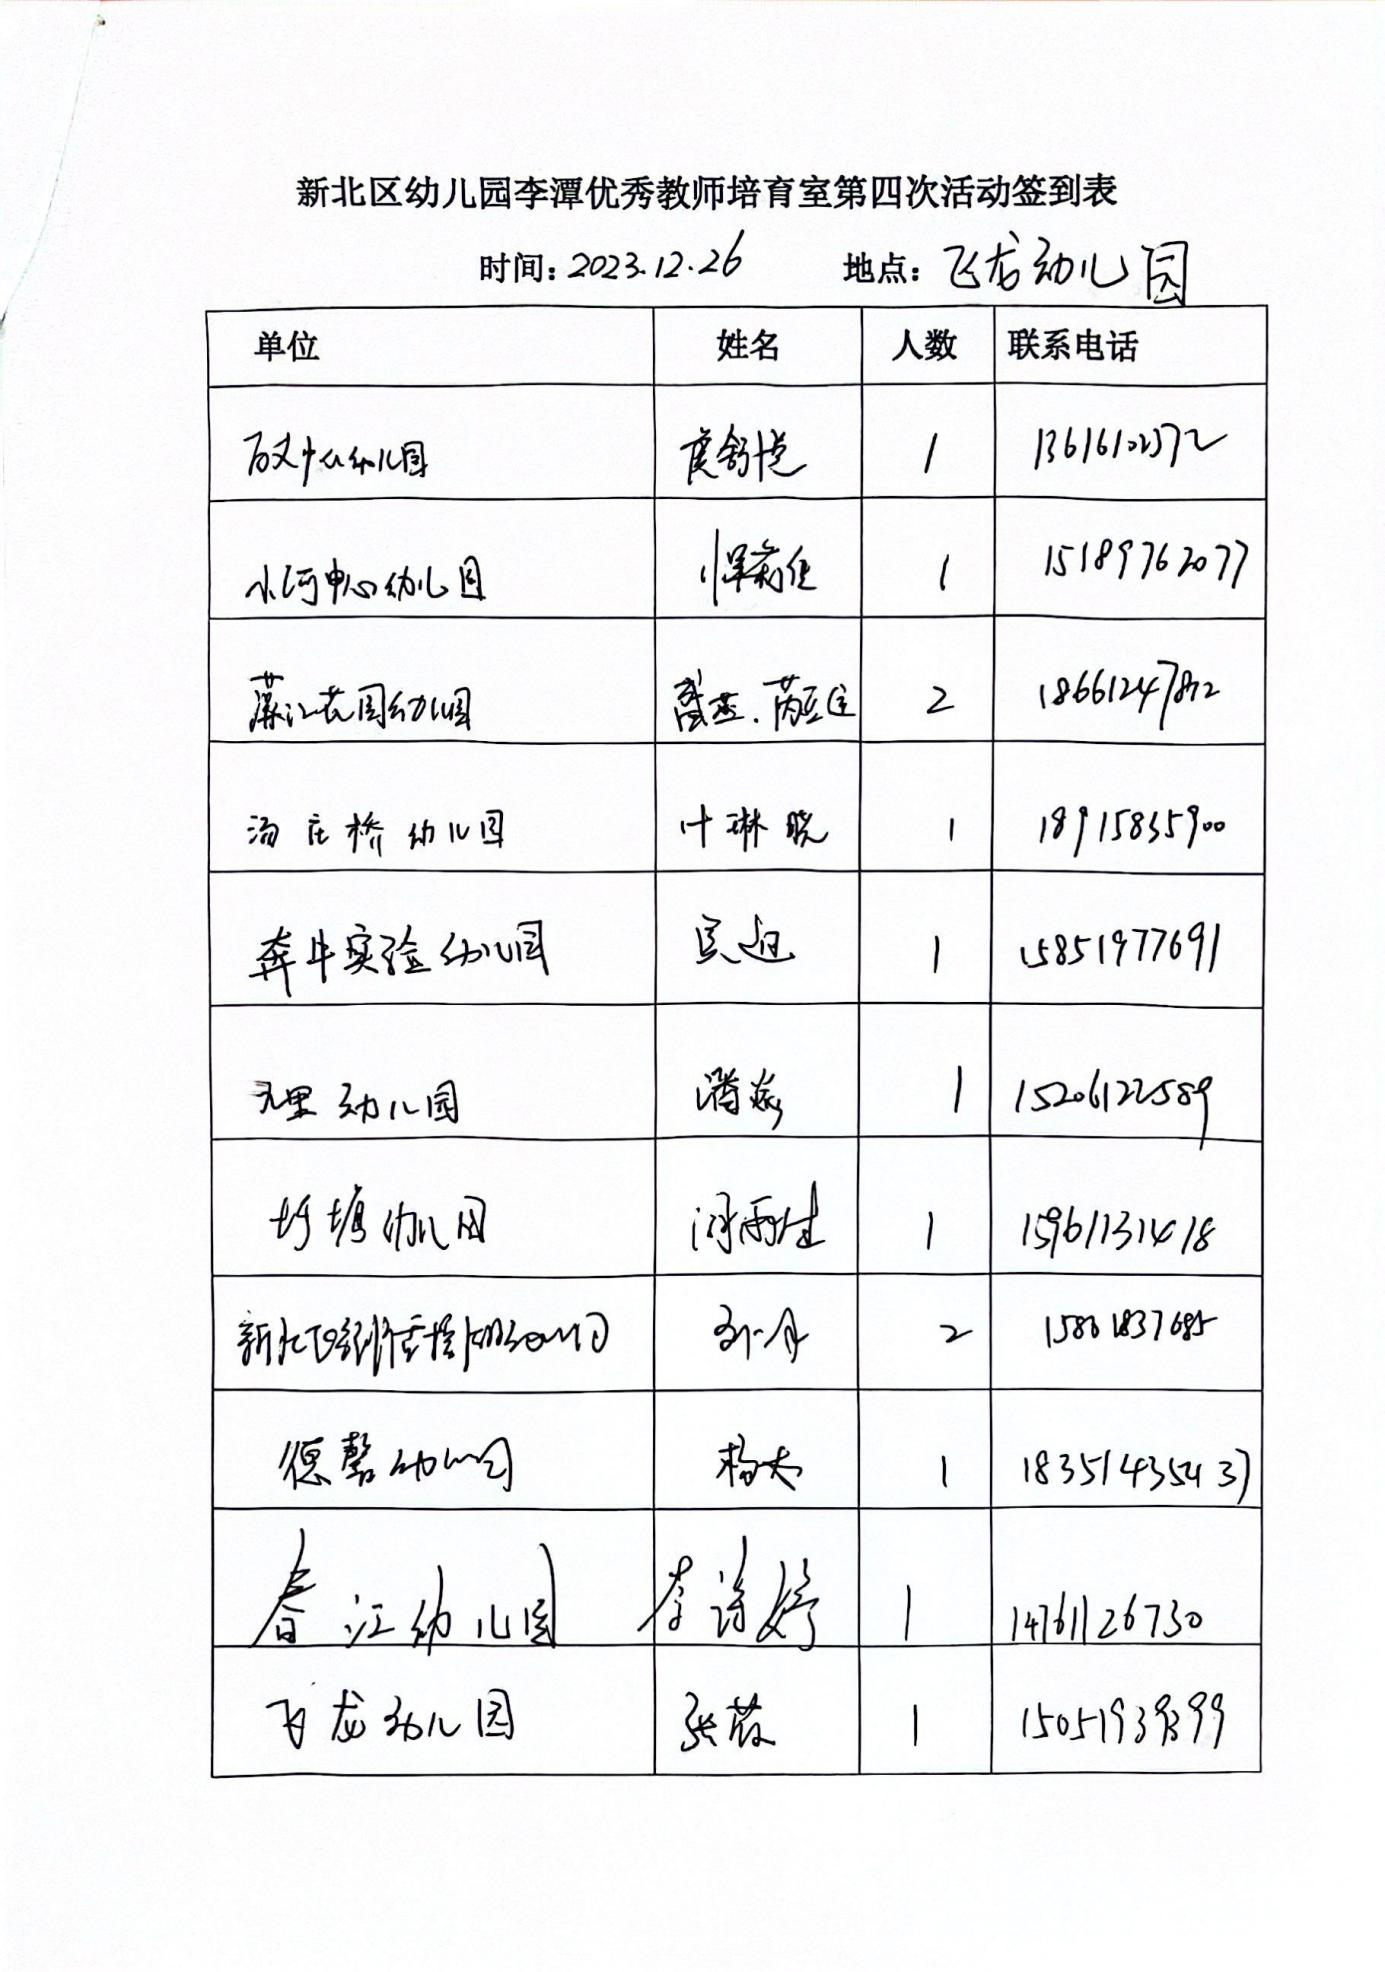 新北区幼儿园李潭优秀教师培育室第四次活动签到表
时间：2023.12.26 地点：飞龙幼儿园
单位 姓名 人数 联系电话
百丈中心幼儿园 虞舒悦 1
小河中心幼儿园 恽 1 15189762077
藻江花园幼儿园 盛燕、芮 2 18661247812
汤庄桥幼儿园 叶琳晓 1 18915835900
奔牛实验幼儿园 吴迪 1 15851977691
九里幼儿园 潘焱 1 15206122589
圩塘幼儿园 雨佳 1 15961131418
新北区 幼儿园 2 15861837685
德馨幼儿园 杨 1 18351435437
春江幼儿园 李诗婷 1 14761126730
飞龙幼儿园 张蓓 1 15051939399